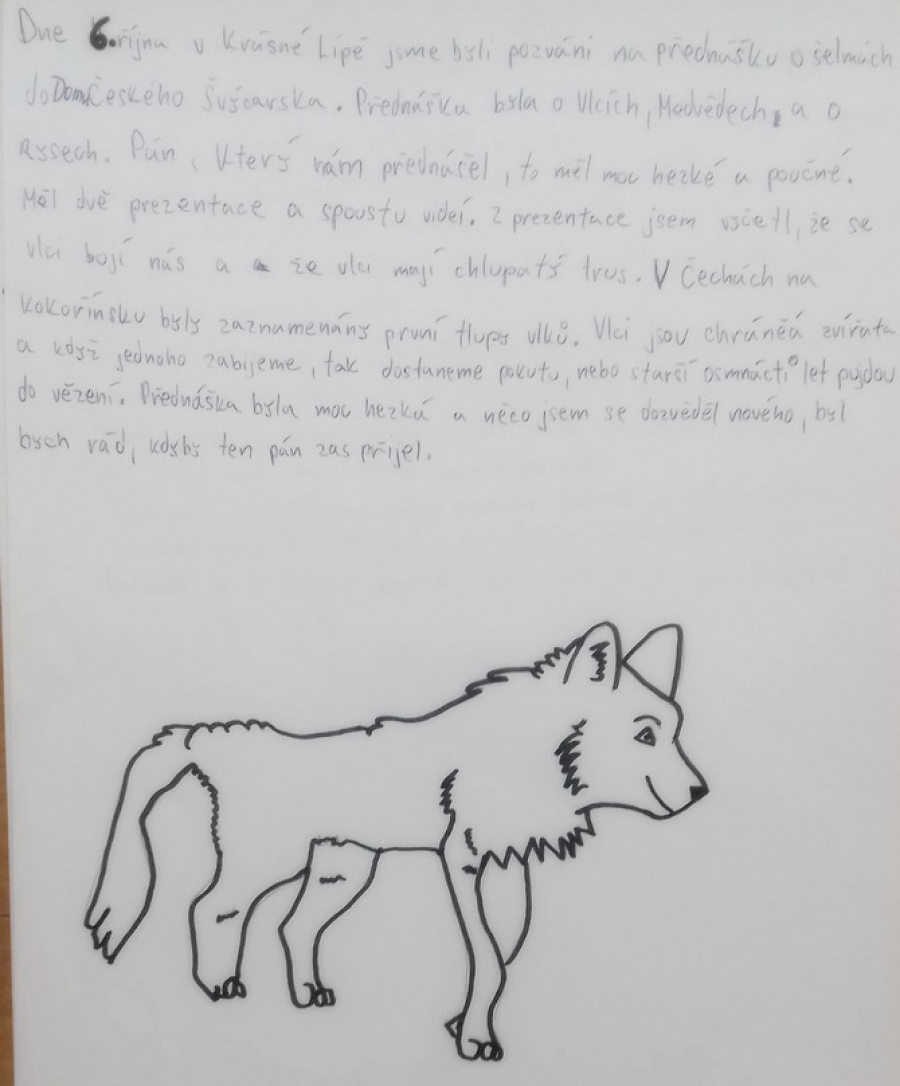 Dne 6. října v Krásné Lípě jsme byli pozváni na přednášku o šelmách
do Domu Českého Švýcarska. Přednáška byla o Vlcích, Medvědech, a o
Rysech. Pán, který nám přednášel, to měl moc hezké a poučné.
Měl dvě prezentace a spoustu videí. Z prezentace jsem vyčetl, že se
vlci bojí nás a že vlci mají chlupatý trus. V Čechách na
Kokořínsku byly zaznamenány první tlupy vlků. Vlci jsou chráněá zvířata
a když jednoho zabijeme, tak dostaneme pokutu, nebo starší osmnácti let pujdou
do vězení. Přednáška byla moc hezká a něco jsem se dozvěděl nového, byl
bych rád, kdyby ten pán zas přijel.